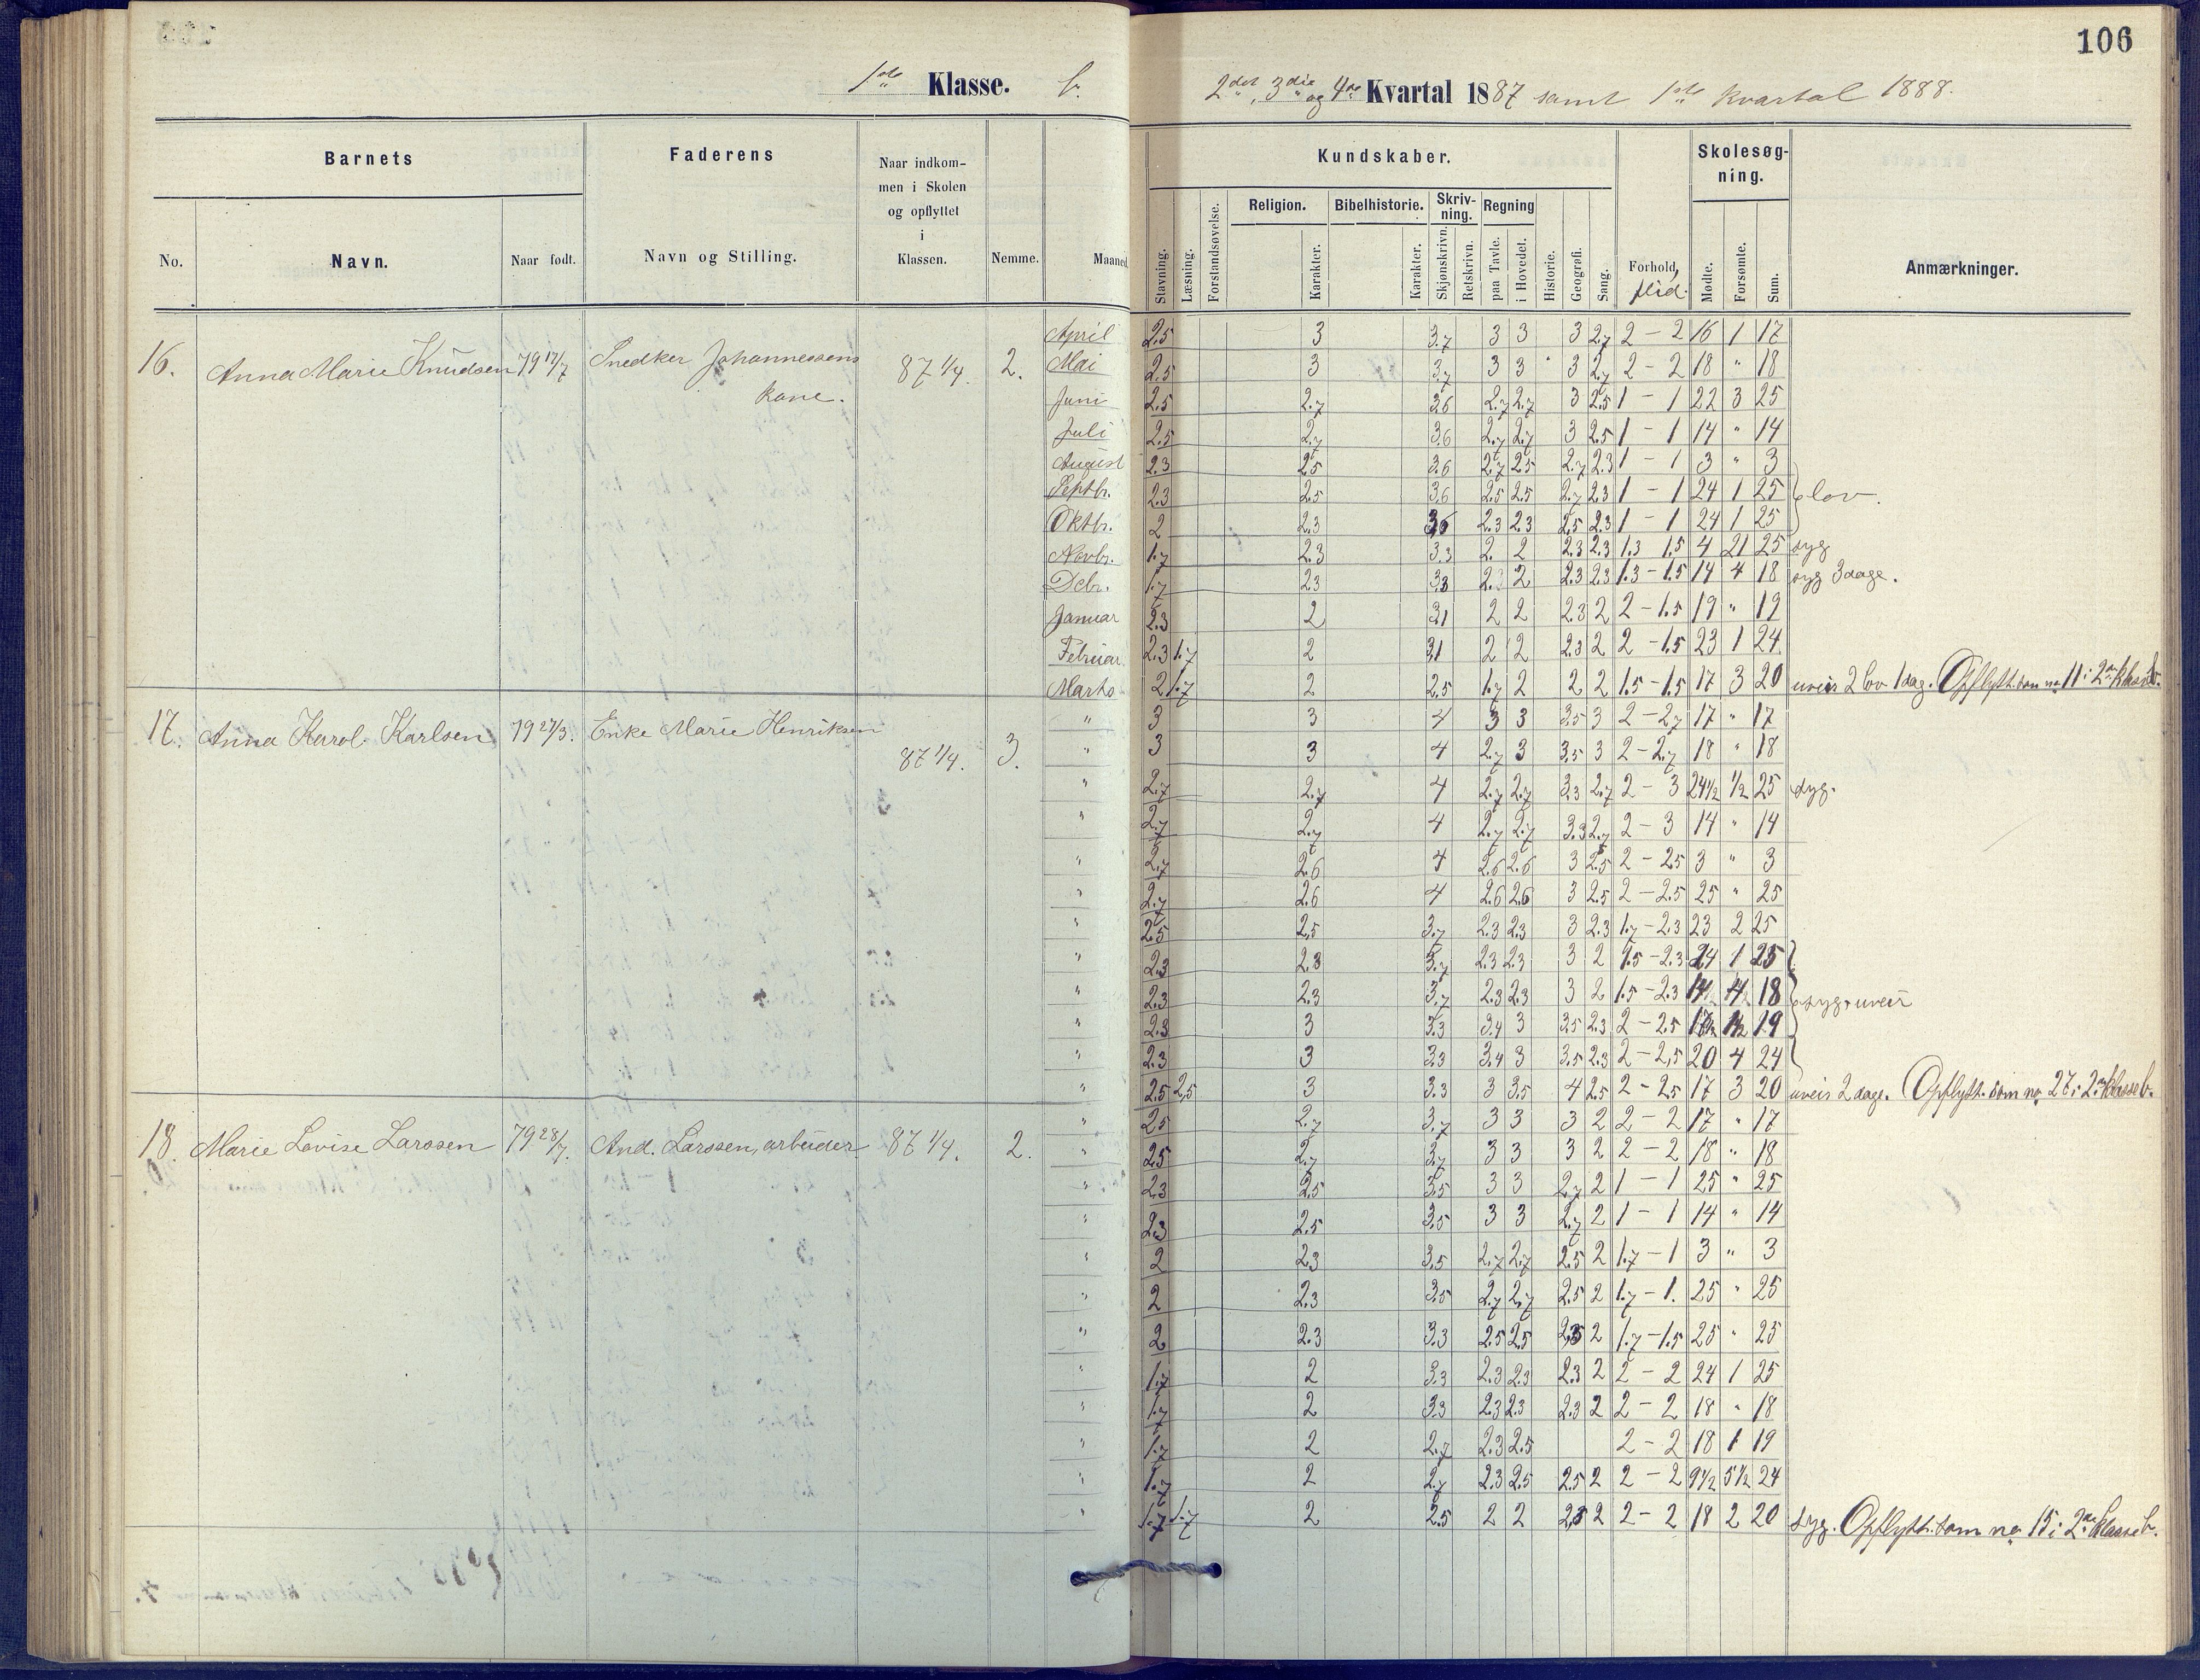 106
1ste Klasse. b.
2det, 3die og 4de Kvartal 1887 samt 1ste Kvartal 1888.
Barnets
Faderens
Naar indkommen i Skolen og opflyttet i Klassen.
Nemme.
Maaned.
No.
Navn.
Naar født.
Navn og Stilling.
Kundskaber.
Skolesøgning.
Stavning.
Læsning.
Forstandsøvelse.
Religion.
Karakter.
Bibelhistorie.
Karakter.
Skrivning.
Skjønskrivn.
Retskrivn.
Regning
paa Tavle.
i Hovedet.
Historie.
Geografi.
Sang.
Forhold, flid.
Mødte.
Forsømte.
Sum.
Anmærkninger.
16. Anna Marie Knudsen 79 17/7 Snedker Johannessens kone. 87 1/4. 2.
April 2.5 3 3.7 3 3 3 2.7 2 - 2 16 1 17
Mai 2.5 3 3.7 3 3 3 2.7 2 - 2 18 " 18
Juni 2.5 2.7 3.6 2.7 2.7 3 2.5 1 - 1 22 3 25
Juli 2.5 2.7 3.6 2.7 2.7 3 2.5 1 - 1 14 " 14
August 2.3 2.5 3.6 2.7 2.5 2.7 2.3 1 - 1 3 " 3
Septbr. 2.3 2.5 3.6 2.5 2.5 2.7 2.3 1 - 1 24 1 25 lov.
Oktbr. 2 2.3 3.6 2.3 2.3 2.5 2.3 1 - 1 24 1 25
Novbr. 1.7 2.3 3.3 2. 2 2.3 2.3 1.3 1.5 4 21 25 syg
Debr. 1.7 2.3 3.3 2.3 2 2.3 2.3 1.3 - 1.5 14 4 18 syg 3 dage.
Januar 2.3 2 3.1 2 2 2.3 2 2 - 1.5 19 " 19
Februar 2.3 1.7 2 3.1 2 2 2.3 2 2 - 1.5 23 1 24
Marts 2 1.7 2 2.5 1.7 2 2 2 1.5 - 1.5 17 3 20 uveir 2 lov 1 dag. Opflytt. som no 11 i 2den klasse b.
17. Anna Karol. Karlsen 79 27/3. Enke Marie Henriksen 87 1/4. 3.
" 3 3 4 3 3 3.5 3 2 - 2.7 17 " 17
" 3 3 4 2.7 3 3.5 3 2 - 2.7 18 " 18
" 2.7 2.7 4 2.7 2.7 3.3 2.7 2 - 3 24 1/2 1/2 25 syg.
" 2.7 2.7 4 2.7 2.7 3.3 2.7 2 - 3 14 " 14
" 2.7 2.6 4 2.6 2.6 3 2.5 2 - 2.5 3 " 3
" 2.7 2.6 4 2.6 2.6 3 2.5 2 - 2.5 25 " 25
" 2.5 2.5 3.7 2.3 2.3 3 2.3 1.7 - 2.3 23 2 25
" 2.3 2.3 3.7 2.3 2.3 3 2 1.5 - 2.3 24 1 25
" 2.3 2.3 3.7 2.3 2.3 3 2 1.5 - 2.3 14 4 18 syg + uveir
" 2.3 3 3.3 3.4 3 3.5 2.3 2 - 2.5 19
" 2.3 3 3.3 3.4 3 3.5 2.3 2 - 2.5 20 4 24
" 2.5 2.5 3 3.3 3 3.5 4 2.5 2 - 2.5 17 3 20 uveir 2 dage. Opflytt. som no 27 i 2den klasse b.
18. Marie Lovise Larssen 79 28/7. And. Larssen, arbeider 87 1/4. 2.
" 2.5 2.7 3.7 3 3 3 2 2 - 2 17 " 17
" 2.5 2.7 3.7 3 3 3 2 2 - 2 18 " 18
" 2.3 2.5 3.5 3 3 2.7 2 1 - 1 25 " 25
" 2.3 2.5 3.5 3 3 2.7 2 1 - 1 14 " 14
" 2 2.3 3.5 2.7 2.7 2.5 2 1.7 - 1 3 " 3
" 2 2.3 3.5 2.7 2.7 2.5 2 1.7 - 1. 25 " 25
" 2 2.3 3.3 2.5 2.5 2.3 2 1.7 - 1.5 25 " 25
" 1.7 2 3.3 2.3 2.3 2.3 2 2 - 2 24 1 25
" 1.7 2 3.3 2.3 2.3 2.3 2 2 - 2 18 " 18
" 1.7 2 2.7 2.3 2.5 2 - 2 18 1 19
" 1.7 2 2.7 2.3 2.5 2.5 2 2 - 2 9 1/2 5 1/2 24
" 1.7 1.7 2 2.5 2 2 2.3 2 2 - 2 18 2 20 syg. Opflytt. som no 15 i 2den klasse b.